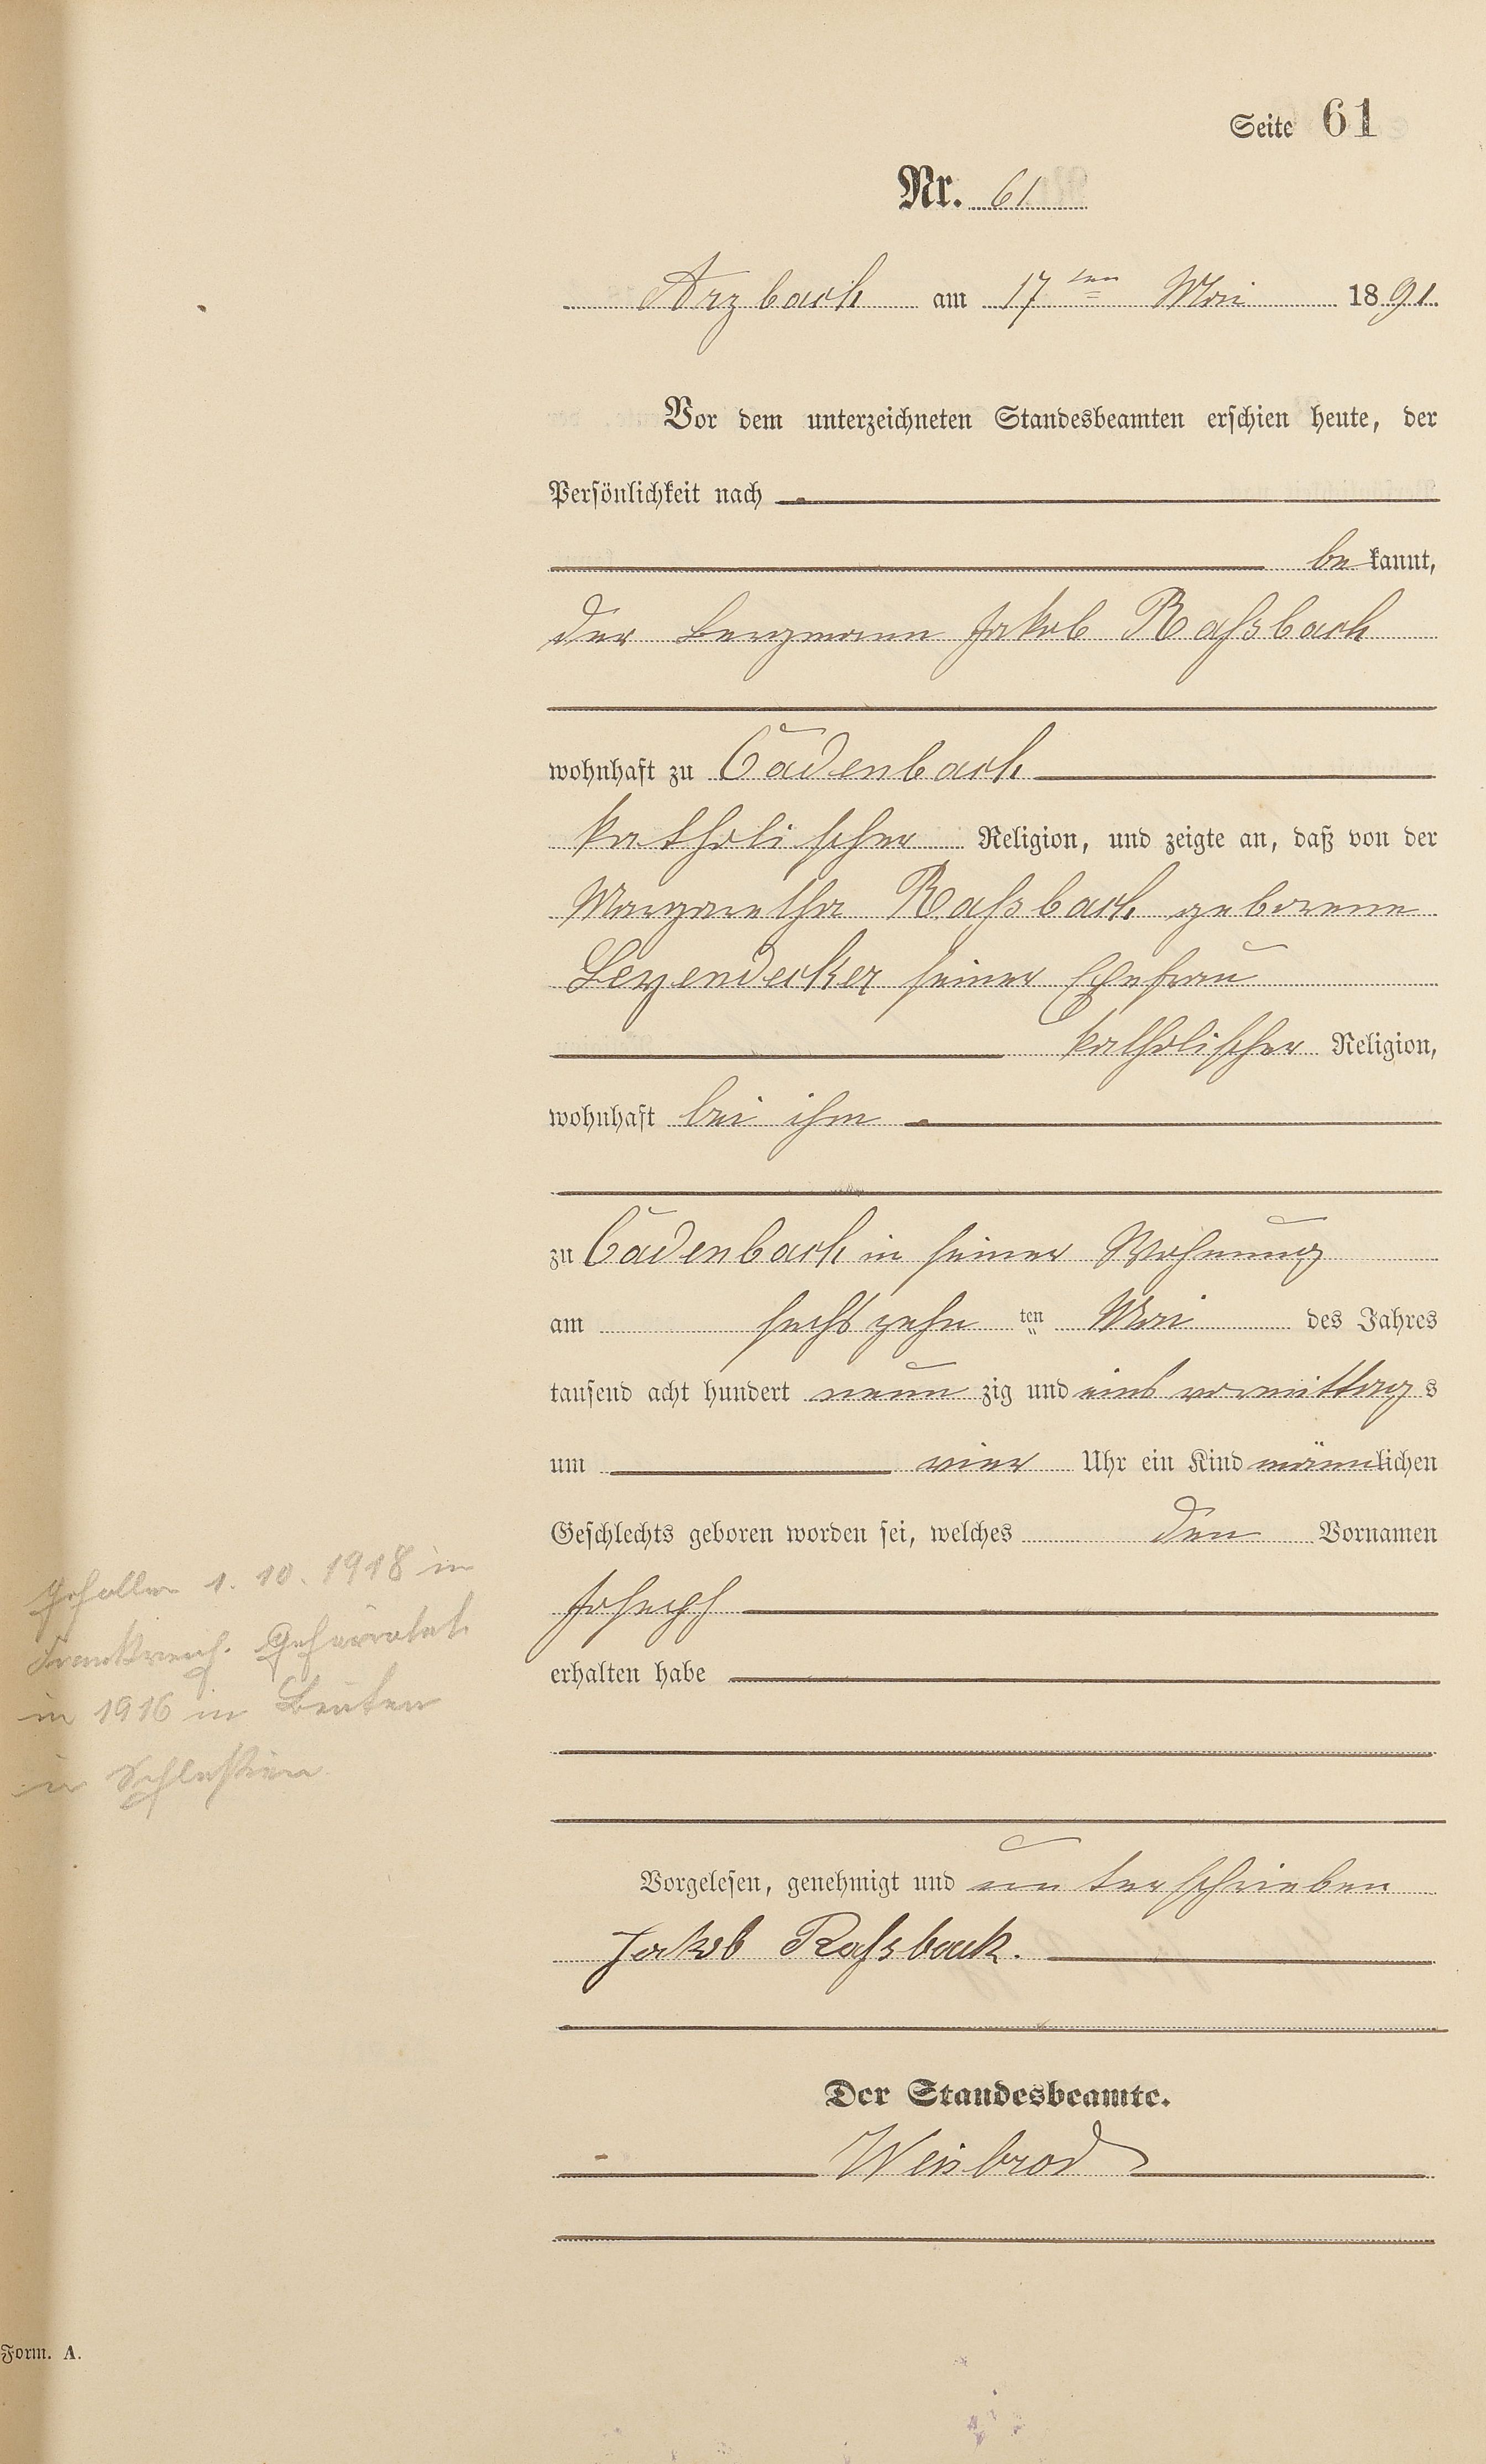 Seite 61
Nr. 61
Arzbach am 17ten Mai 1891.
Vor dem unterzeichneten Standesbeamten erschien heute, der
Persönlichkeit nach
be kannt,
der Bergmann Jakob Raßbach
wohnhaft zu Cadenbach
katholischer Religion, und zeigte an, daß von der
Margaretha Raßbach geborene
Leyendecker seiner Ehefrau
katholischer Religion,
wohnhaft bei ihm
zu Cadenbach in seiner Wohnung
am sechszehn ten Mai des Jahres
tausend acht hundert neun zig und eins vormittags
um vier Uhr ein Kind männlichen
Geschlechts geboren worden sei, welches den Vornamen
Joseph
erhalten habe
Gefallen 1. 10. 1918 in
Frankreich. Geheiratet
in 1916 in Beuten
in Schlesien.
Vorgelesen, genehmigt und unterschrieben
Jakob Raßbach.
Der Standesbeamte.
Weisbrod
Form. A.